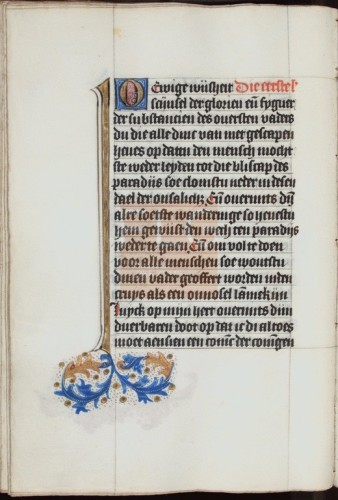 O Ewige wijsheit Die eerste
schijnsel der glorien eñ fyguer
der substancien des ouersten vaders
du die alle dinc van niet gescapen
heues op dattu den mensch mocht
ste weder leyden tot die bliscap des
paradijs soe clomstu neder in desen
dael der onsalich; Eñ ouermits dijn
alre soetste wanderinge so heuestu
hem gewijst den wech ten paradijs
weder te gaen; Eñ om vol te doen
voor alle menschen soe woutstu
dinen vader geoffert worden inden
cruys als een onnosel lammekijn
Iuyck op mijn herr ouermits dijn
duerbaren doot op dat ic di altoes
moet aensien een coninc der coningen